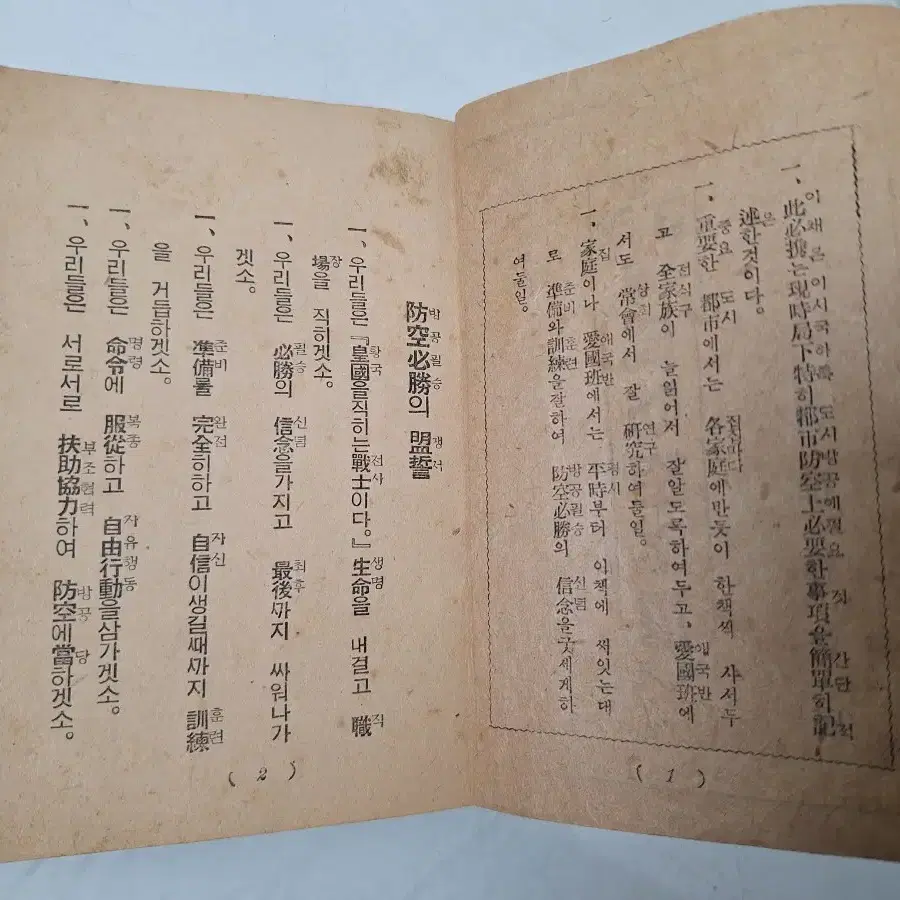 이 채 은 이시국하 특 도시 방공에필요 것 간단 적
一、此必携는現時局下特히都市防空上必要한事項을簡單히記
은
述한것이다。
중요 도시 애국반
一、重要한 都市에서는 各家庭에만듯이 한책씩 사서두
전식구
고 全家族이 늘읽어서 잘알도록하여두고、愛國班에
상회 연구
서도 常會에서 잘 硏究하여둘일。
집 애국반 평시
一、家庭이나 愛國班에서는 平時부터 이책에 써잇는대
준비 훈련 방공필승 신념
로 準備와訓練을잘하여 防空必勝의 信念을굿세게하
여둘일。
( 1 )
방공필승 맹서
防空必勝의 盟誓
황국 전사 생명 직
一、우리들은『皇國을직히는戰士이다。』生命을 내걸고 職
장
場을 직히겟소。
필승 신념 최후
一、우리들은 必勝의 信念을가지고 最後까지 싸워나가
겟소。
준비 완전 자신 훈련
一、우리들은 準備를 完全히하고 自信이생길때까지 訓練
을 거듭하겟소。
명령 복종 자유행동
一、우리들은 命令에 服從하고 自由行動을삼가겟소。
부조협력 방공 당
一、우리들은 서로서로 扶助協力하여 防空에當하겟소。
( 2 )